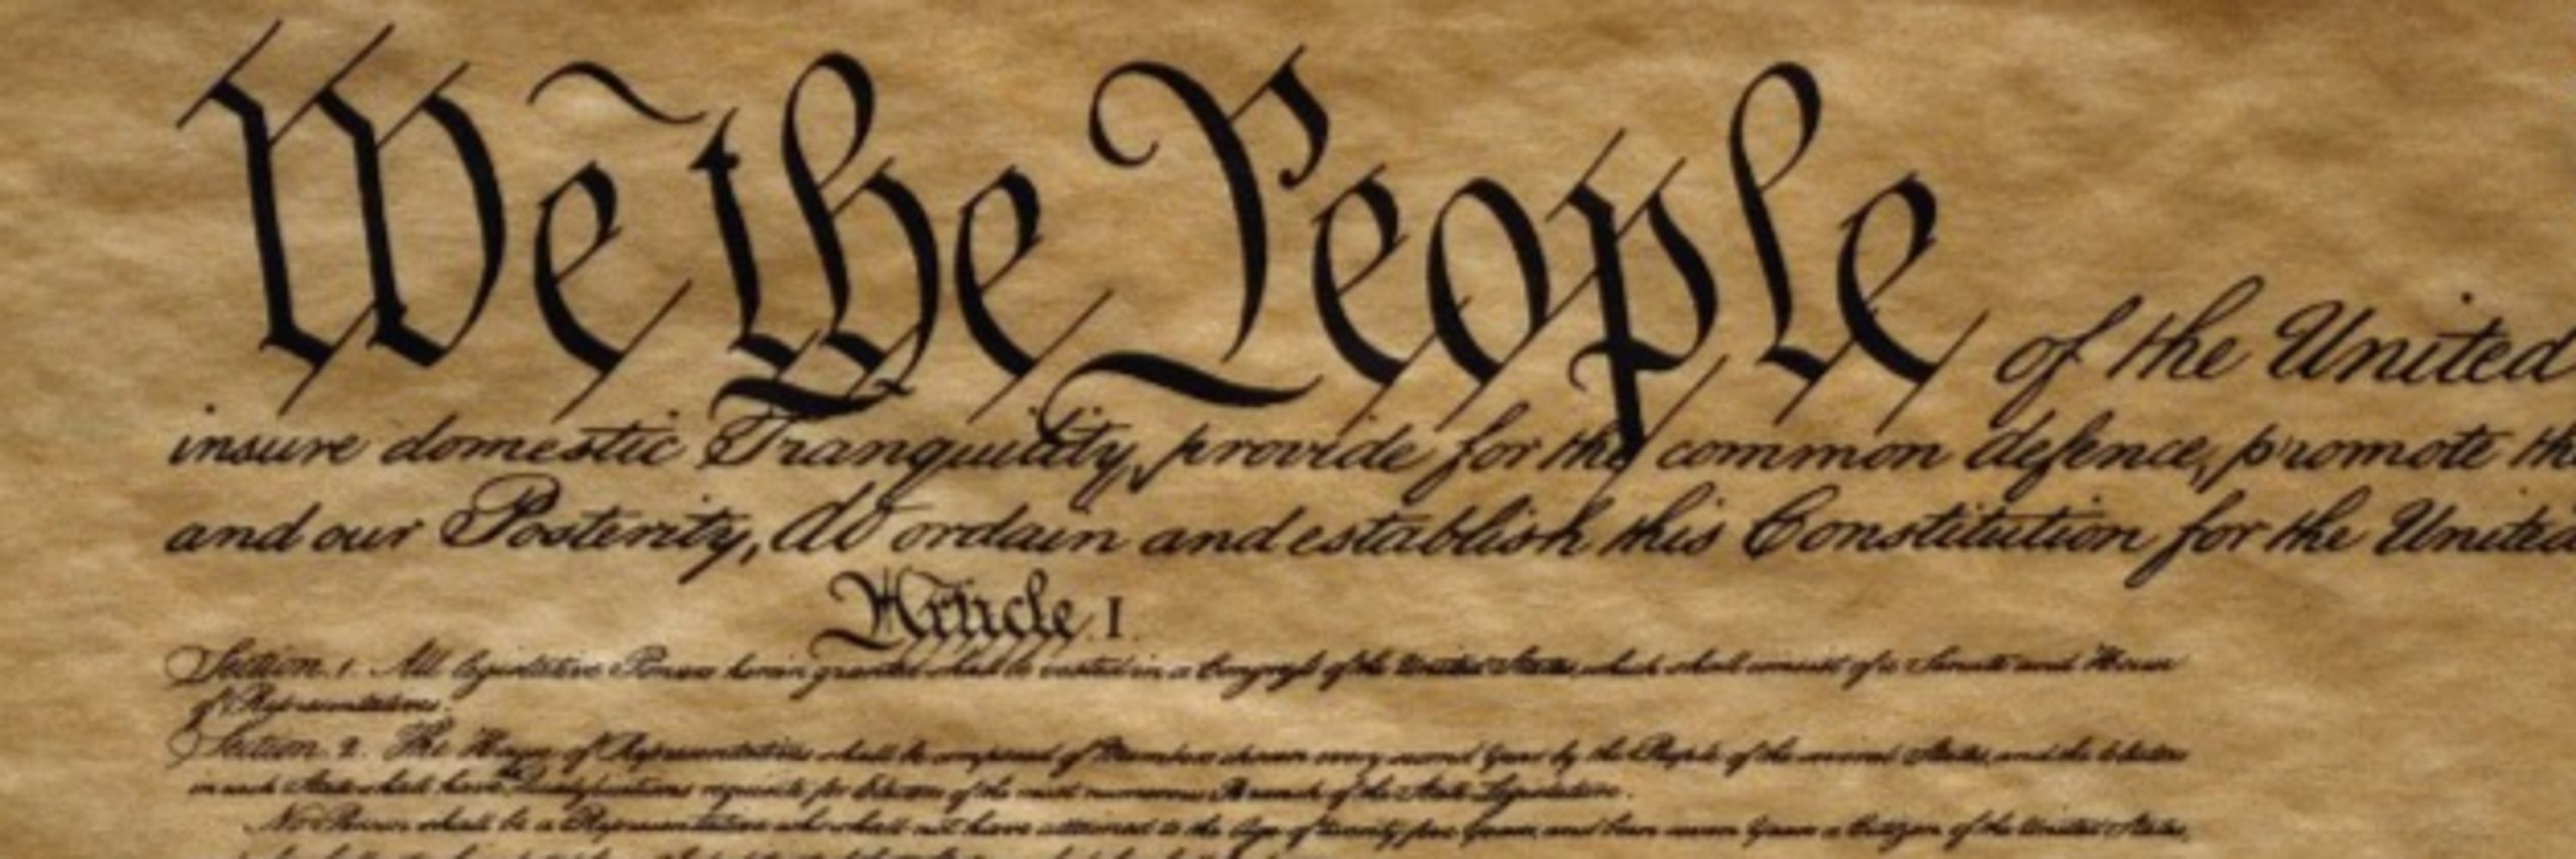 We the People of the United
insure domestic Tranquility, provide for the common defence, promote the
and our Posterity, do ordain and establish this Constitution for the United
Article I
Section. 1. All legislative Powers herein granted shall be vested in a Congress of the United States, which shall consist of a Senate and House
of Representatives.
Section. 2. The House of Representatives shall be composed of Members chosen every second Year by the People of the several States, and the Electors
in each State shall have the Qualifications requisite for Electors of the most numerous Branch of the State Legislature.
No Person shall be a Representative who shall not have attained to the Age of twenty five Years, and been seven Years a Citizen of the United States,